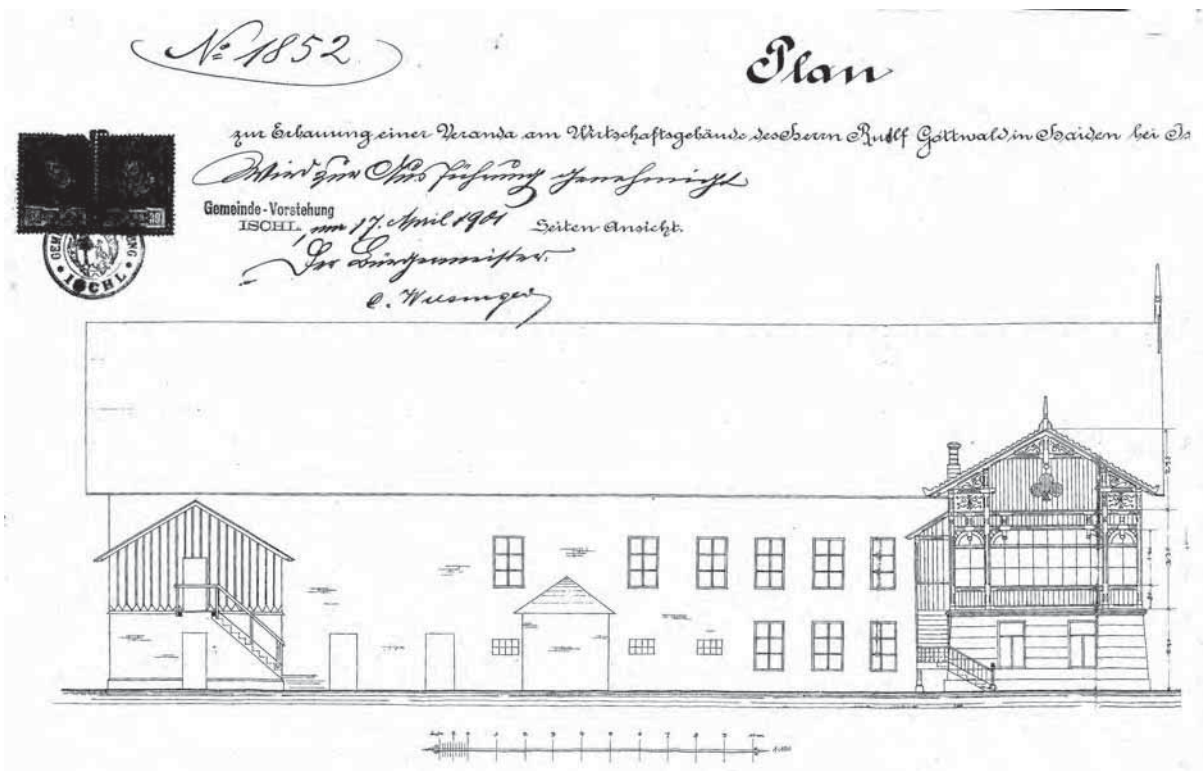 No 1852
Plan
zur Erbauung einer Veranda am Wirtschaftsgebäude des Herrn Rudolf Gottwald in Haiden bei Is
Wird zur Ausführung genehmigt
Gemeinde-Vorstehung
ISCHL, am 17. April 1901
Seiten Ansicht.
Der Bürgermeister.
ISCHL
1 2 3 4 5 6 7 8 9